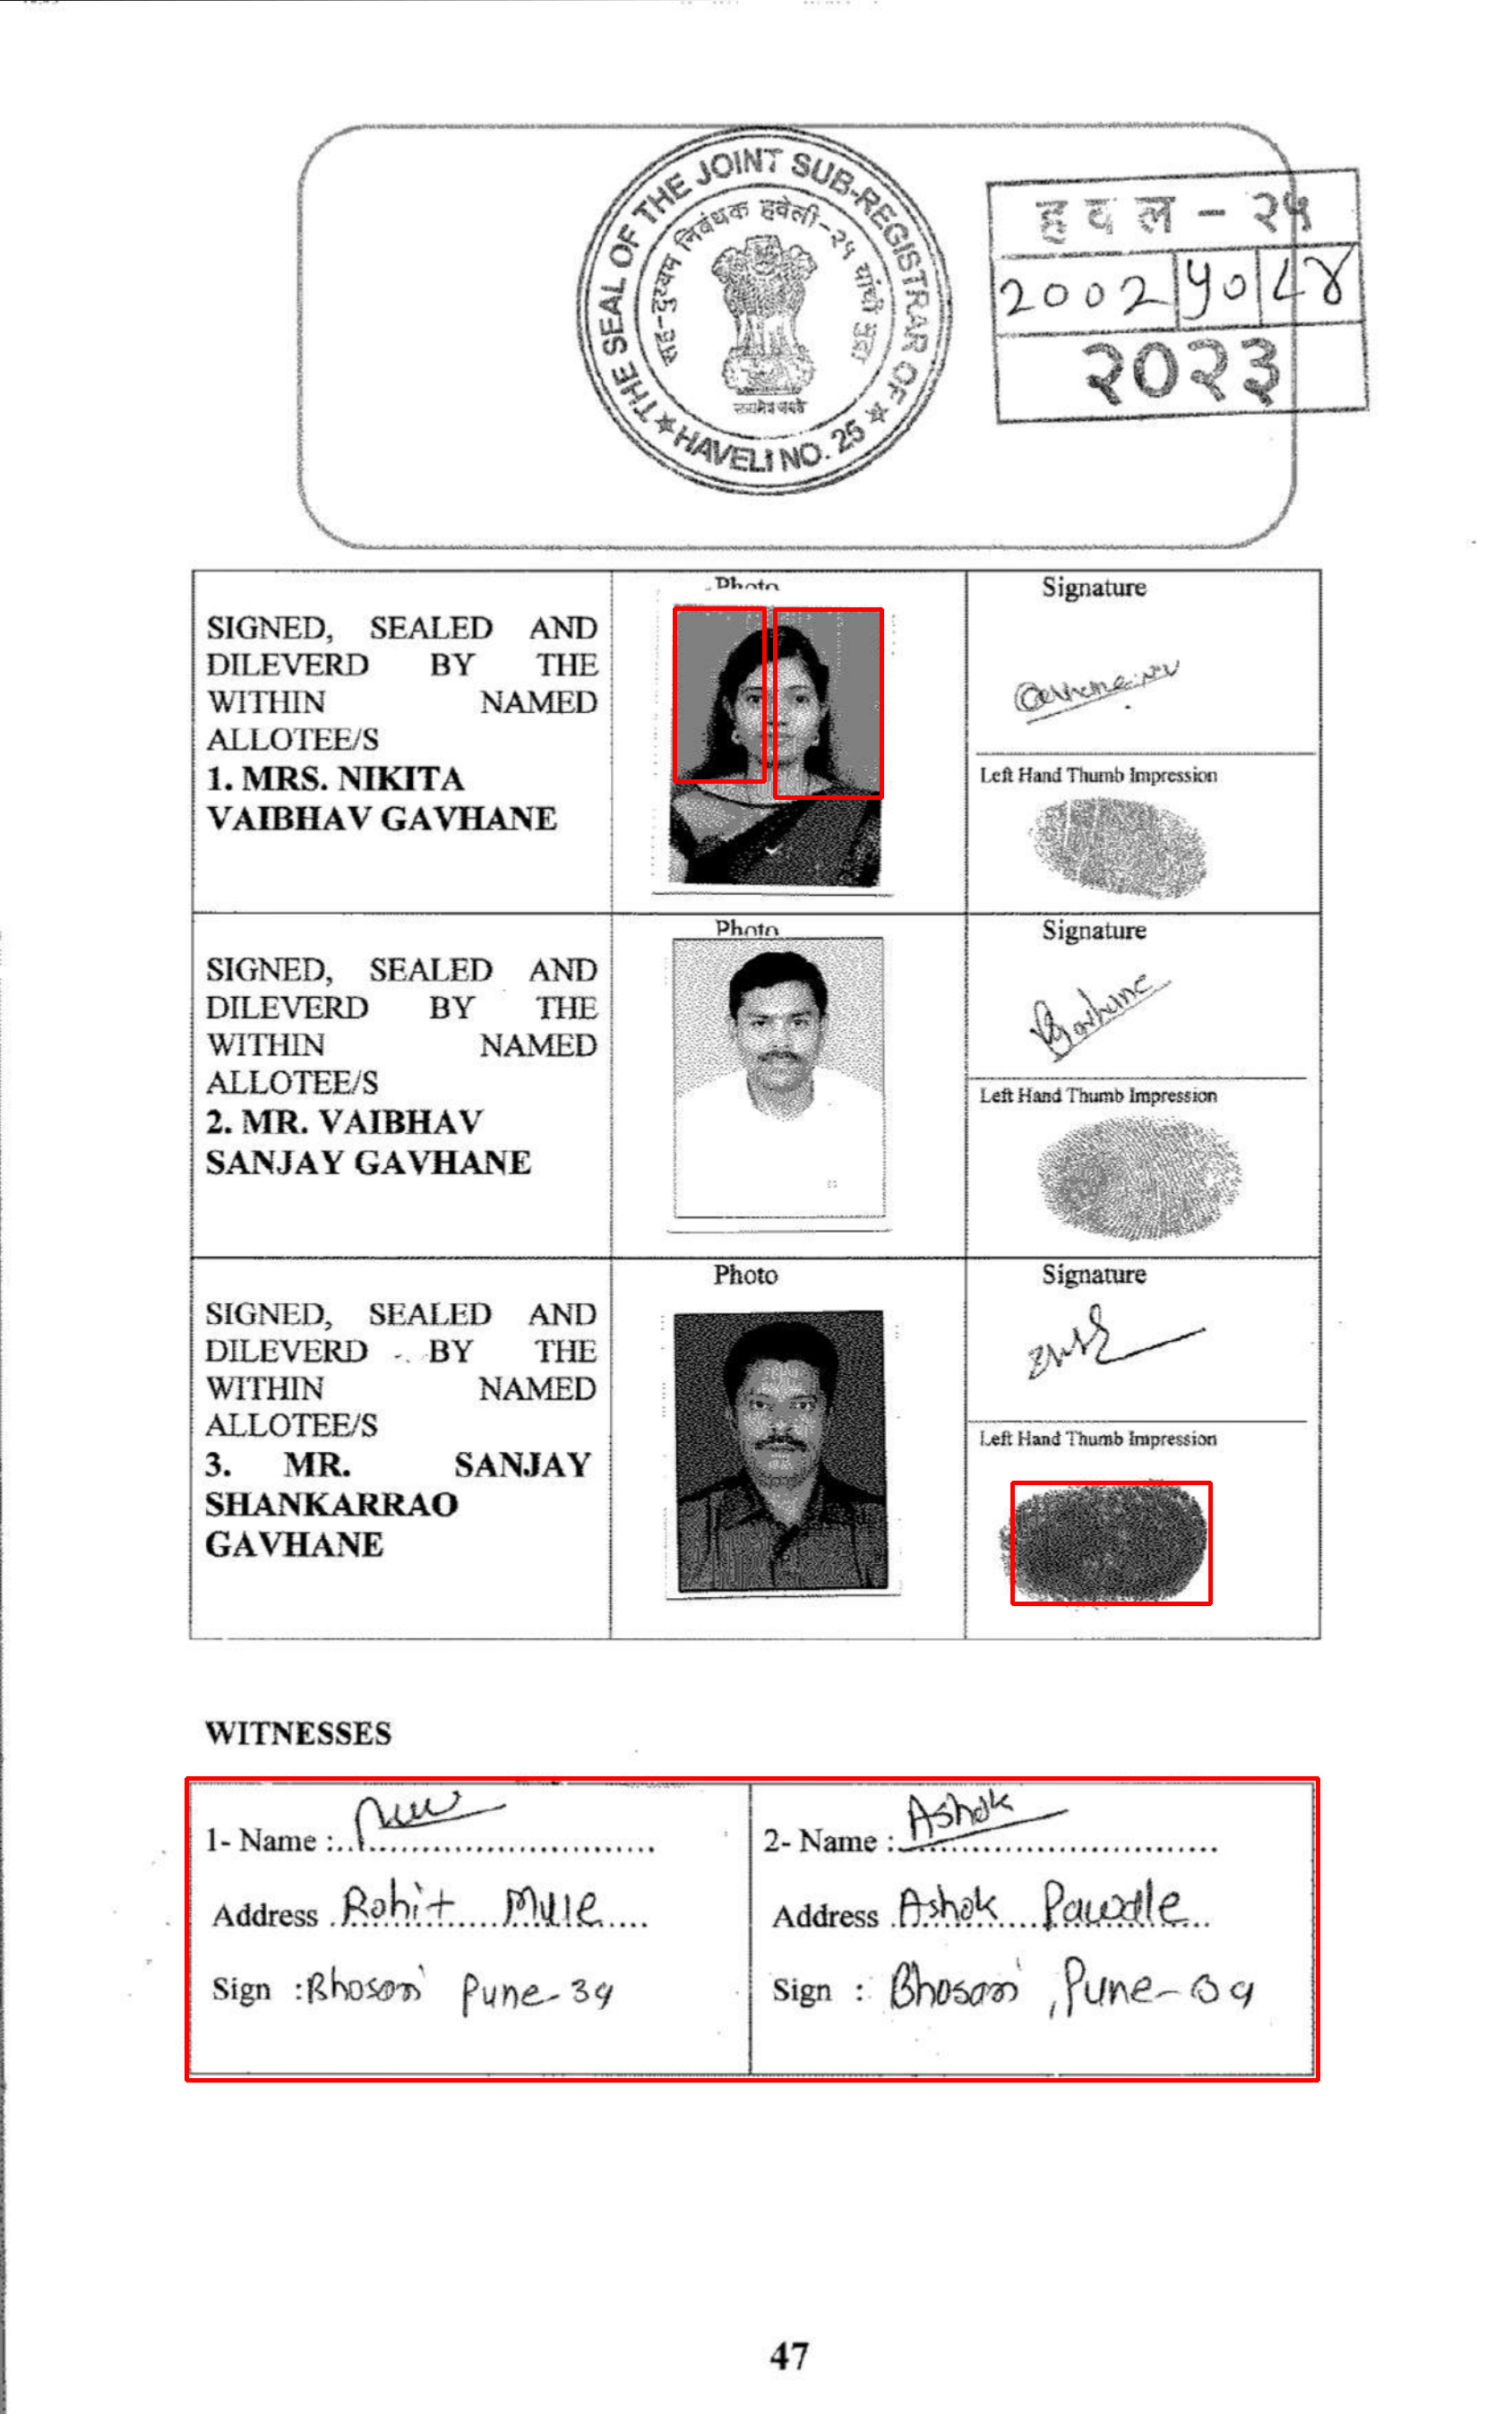 THE SEAL OF THE JOINT SUB-REGISTRAR OF
★ HAVELI NO. 25 ★
सह-दुय्यम निबंधक हवेली-२५ यांची मुद्रा
सत्यमेव जयते
हवल - २५
2002 | 50 | ८४
२०२३
Photo
Signature
SIGNED, SEALED AND
DILEVERD BY THE
WITHIN NAMED
ALLOTEE/S
1. MRS. NIKITA
VAIBHAV GAVHANE
Left Hand Thumb Impression
Photo
Signature
SIGNED, SEALED AND
DILEVERD BY THE
WITHIN NAMED
ALLOTEE/S
2. MR. VAIBHAV
SANJAY GAVHANE
Gavhane
Left Hand Thumb Impression
Photo
Signature
SIGNED, SEALED AND
DILEVERD BY THE
WITHIN NAMED
ALLOTEE/S
3. MR. SANJAY
SHANKARRAO
GAVHANE
Left Hand Thumb Impression
WITNESSES
1- Name :
Address Rohit Mule
Sign : Bhosari Pune-39
2- Name : Ashok
Address Ashok Pawdle
Sign : Bhosari, Pune-39
47